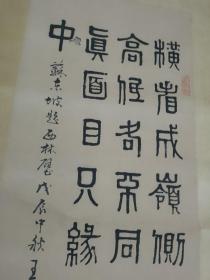 橫看成嶺側
高低各不同
眞面目只緣
中
蘇東坡題西林壁 戊辰中秋 王